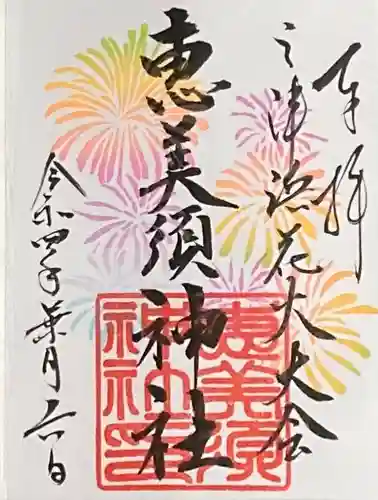 奉拝
三津浜花火大会
恵美須神社
令和四年葉月六日
惠美須
神社印